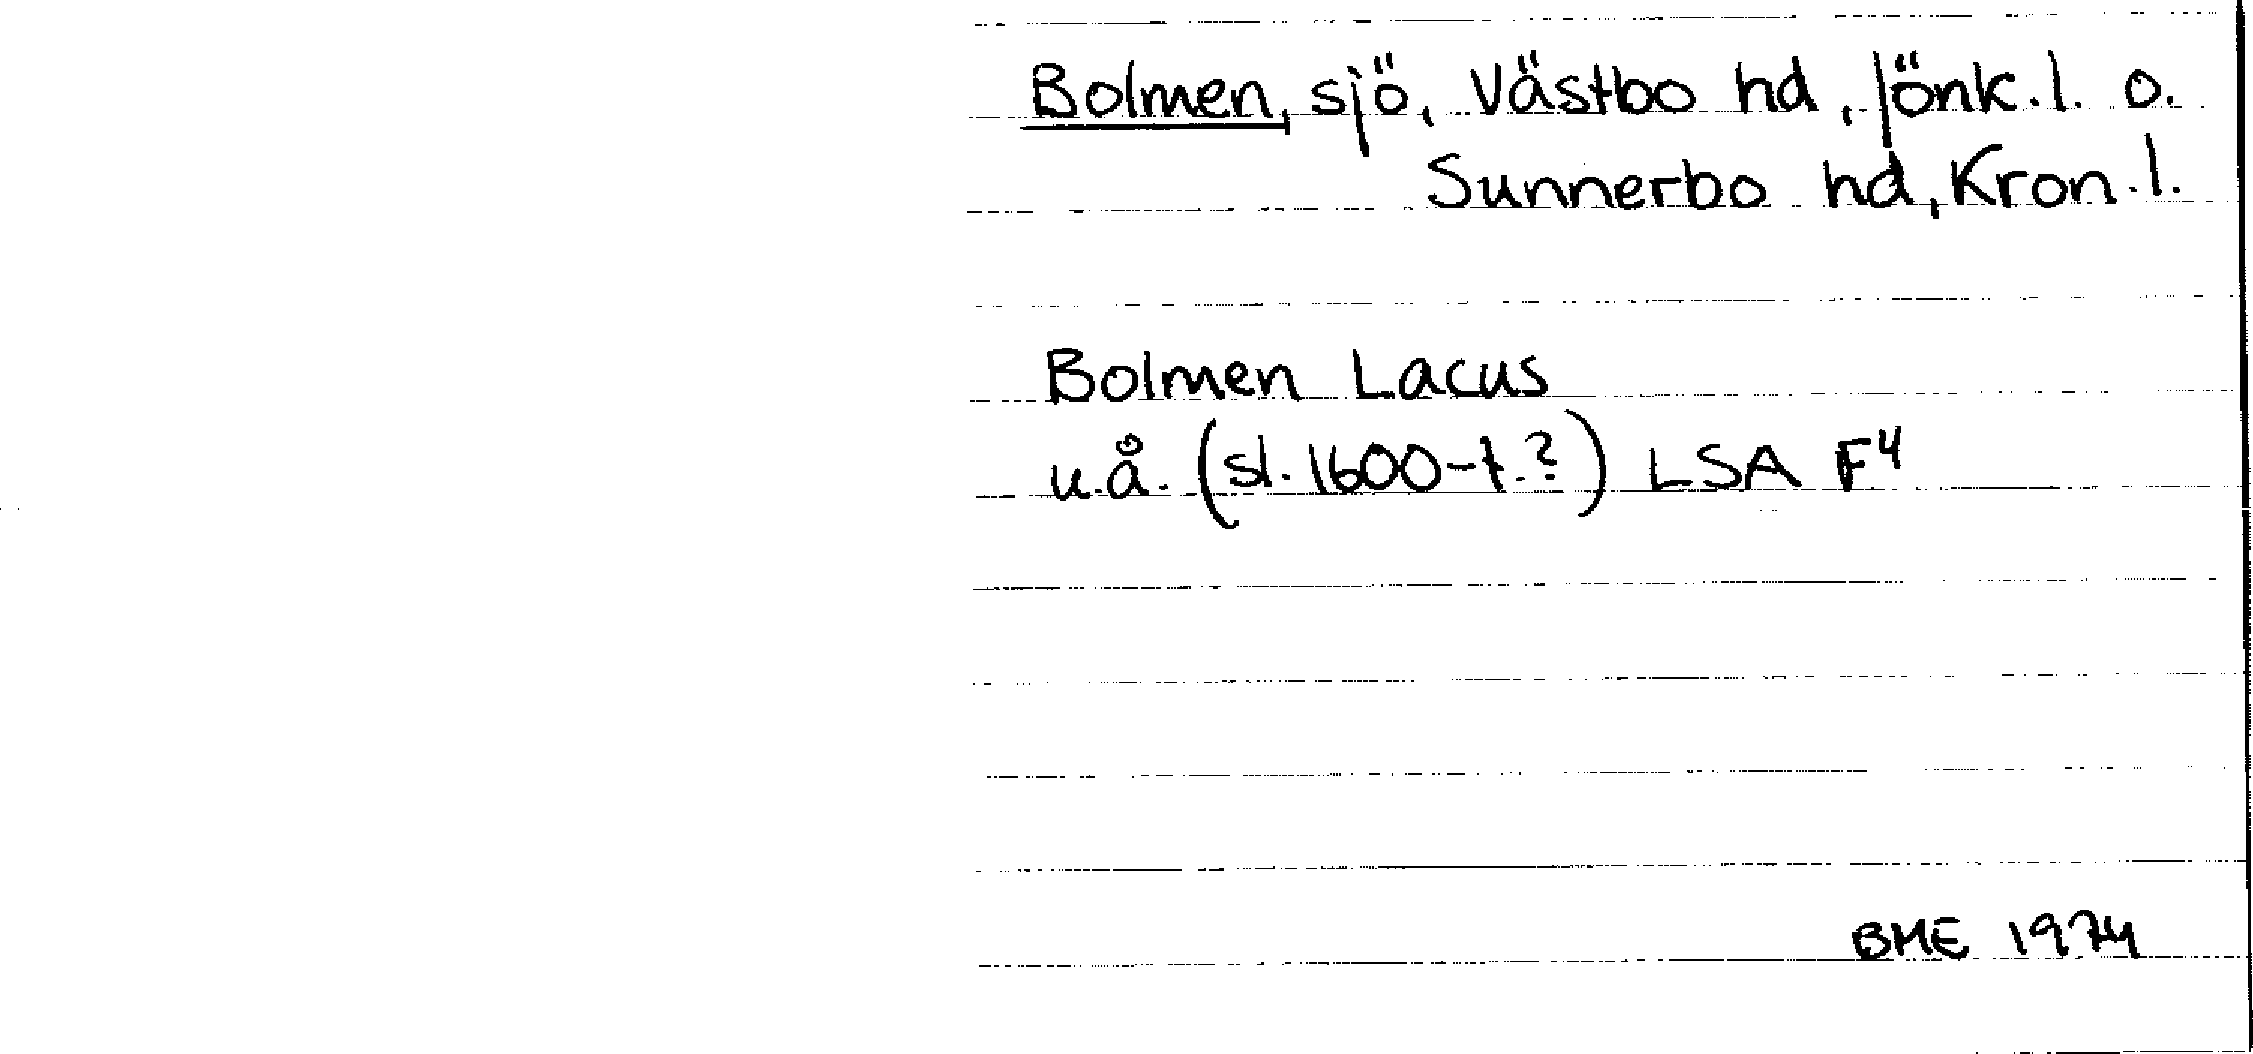 Bolmen, sjö, Västbo hd, Jönk.l. o.
Sunnerbo hd, Kron.l.
Bolmen Lacus
u.å. (sl. 1600-t.?) LSA F4
BME 1974